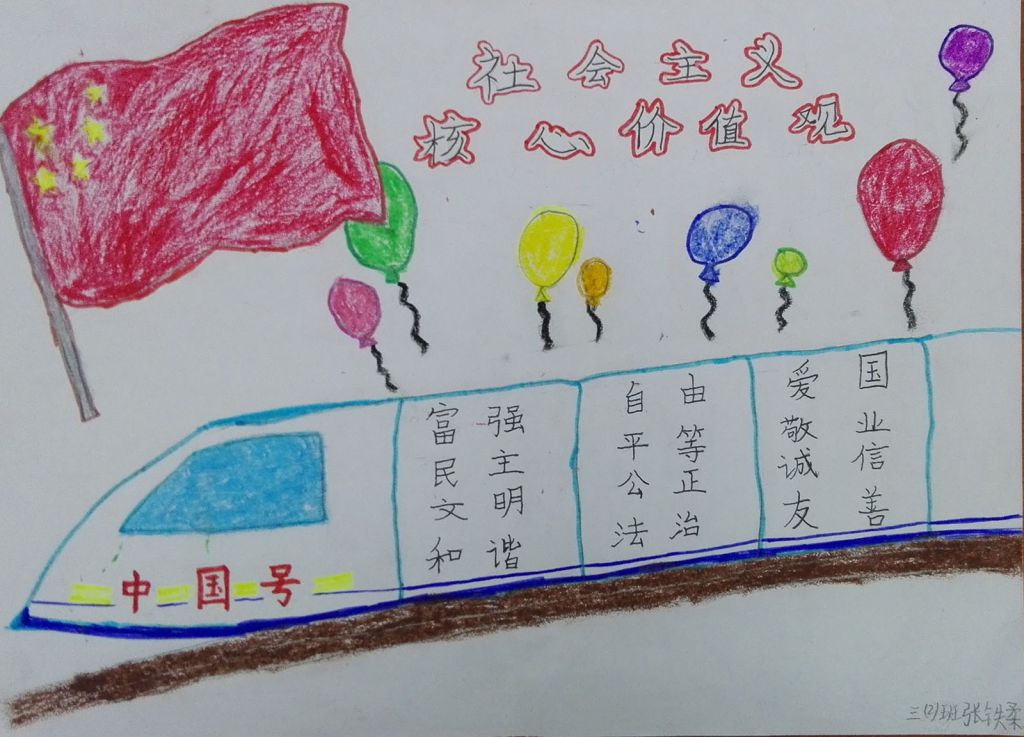 社会主义
核心价值观
富强
民主
文明
和谐
自由
平等
公正
法治
爱国
敬业
诚信
友善
中国号
三(2)班张铁柔